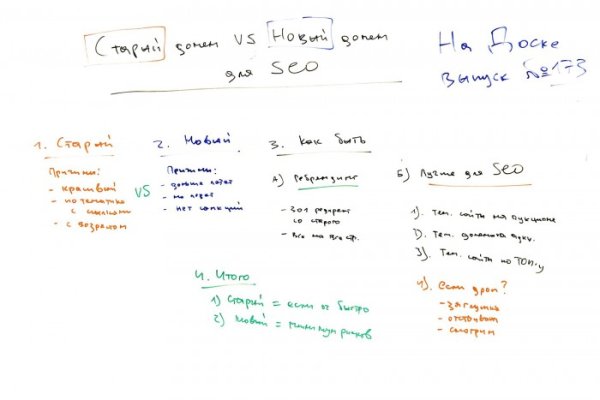 Старый домен VS Новый домен
для SEO
На Доске
выпуск №173
1. Старый
Причины:
- красивый
- по тематике
с ссылками
- с возрастом
VS
2. Новый
Причины:
- дольше
- не
- нет санкций
3. Как быть
А) Ребрендинг
- 301 редирект
со старого
- Все на все стр.
Б) Лучше для SEO
1). Тем. сайты на аукционе
2). Тем. домены аукц.
3). Тем. сайты по ТОП-у
4). если дроп?
- заглушка
-
- смотрим
4. Итого
1) Старый = если оч быстро
2) Новый = минимум рисков